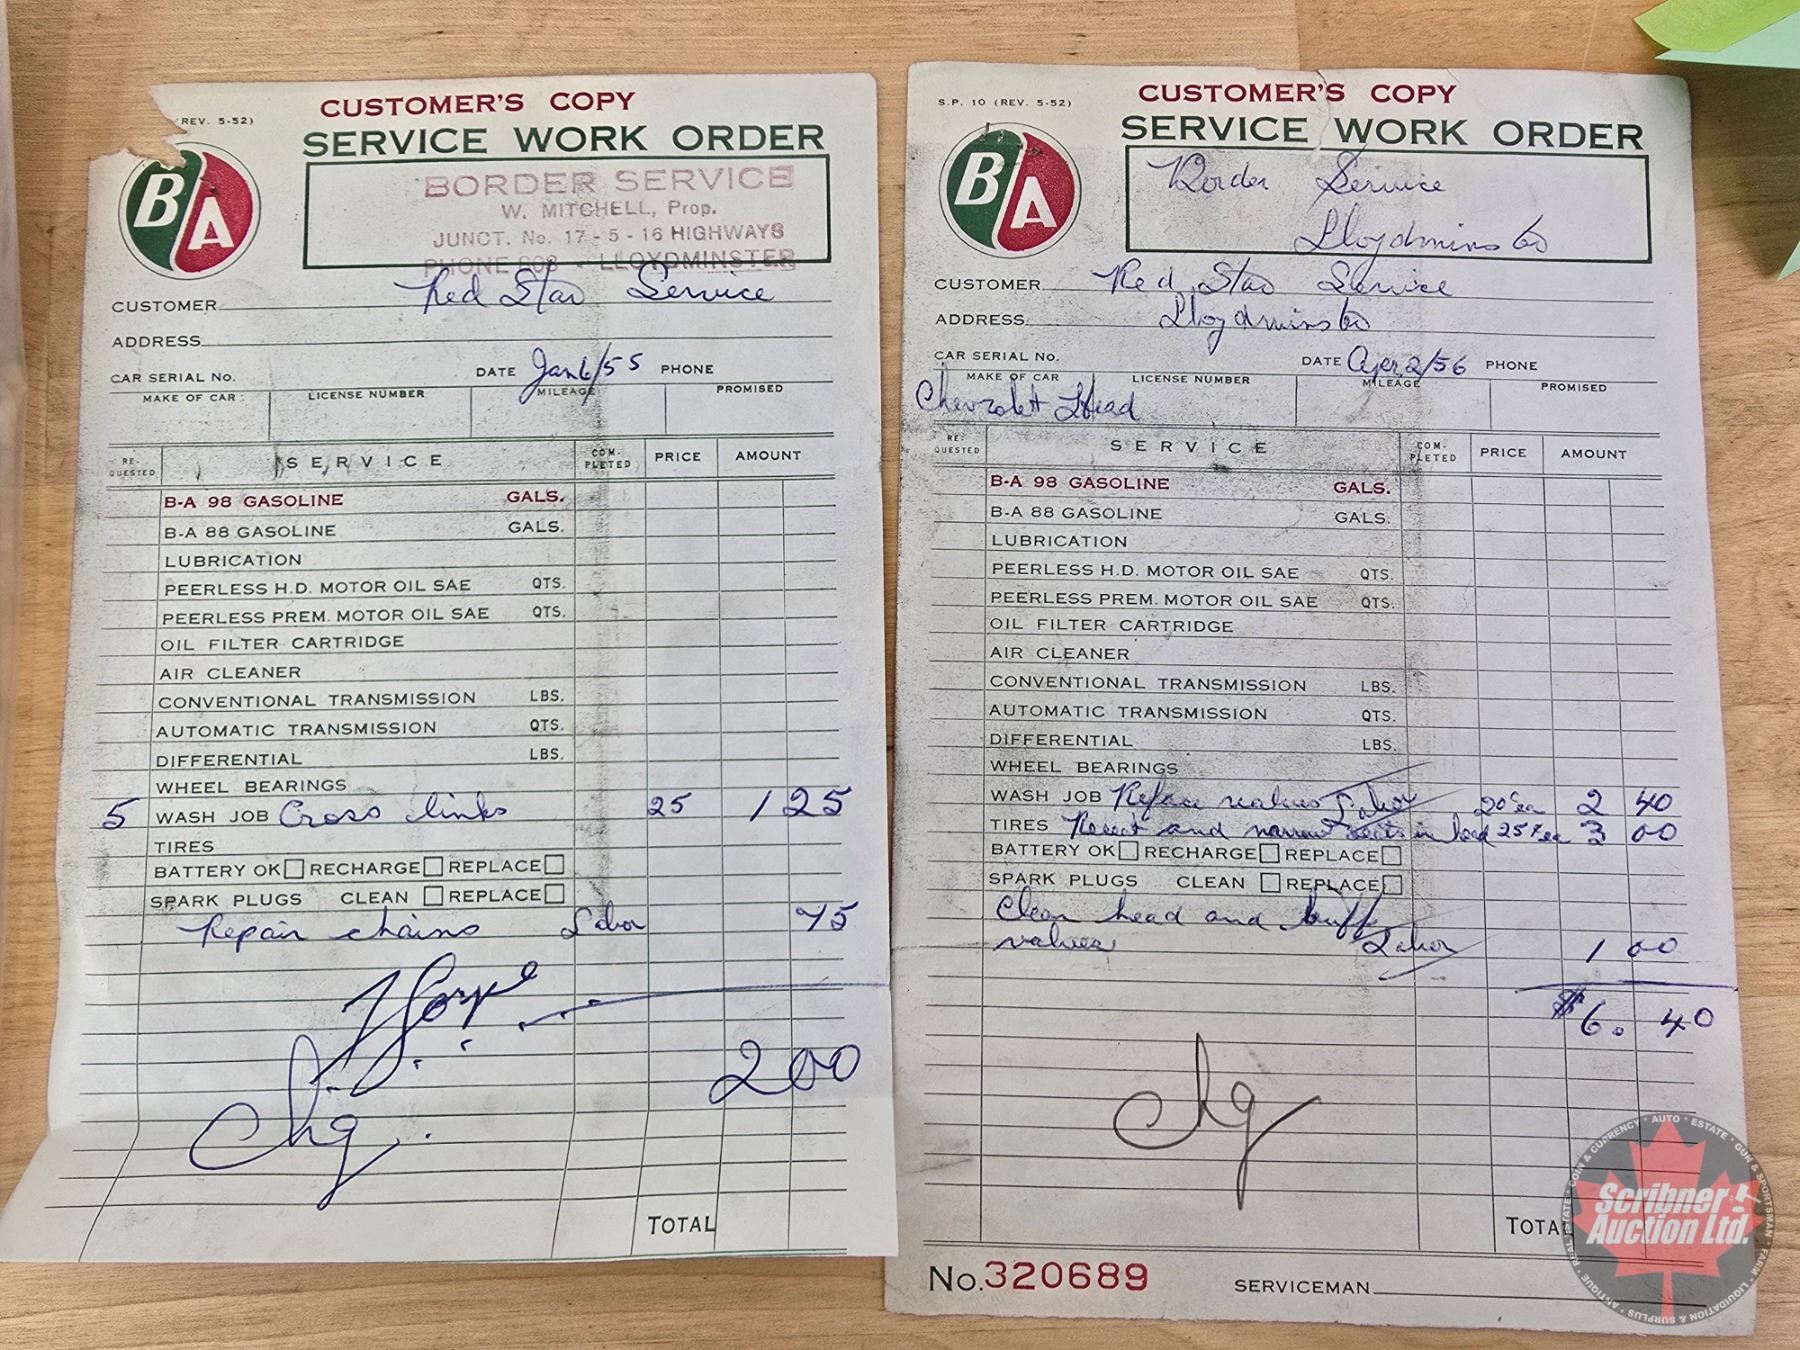 REV. 5-52)
CUSTOMER'S COPY
SERVICE WORK ORDER
BA
BORDER SERVICE
W. MITCHELL, Prop.
JUNCT. No. 17 - 5 - 16 HIGHWAYS
PHONE 808 - LLOYDMINSTER
CUSTOMER Red Star Service
ADDRESS
CAR SERIAL No. DATE Jan 6/55 PHONE
MAKE OF CAR LICENSE NUMBER MILEAGE PROMISED
RE-QUESTED SERVICE COM-PLETED PRICE AMOUNT
B-A 98 GASOLINE GALS.
B-A 88 GASOLINE GALS.
LUBRICATION
PEERLESS H.D. MOTOR OIL SAE QTS.
PEERLESS PREM. MOTOR OIL SAE QTS.
OIL FILTER CARTRIDGE
AIR CLEANER
CONVENTIONAL TRANSMISSION LBS.
AUTOMATIC TRANSMISSION QTS.
DIFFERENTIAL LBS.
WHEEL BEARINGS
5 WASH JOB Cross links 25 1 25
TIRES
BATTERY OK RECHARGE REPLACE
SPARK PLUGS CLEAN REPLACE
Repair chains Labor 75
2 00
Chg.
TOTAL
S.P. 10 (REV. 5-52)
CUSTOMER'S COPY
SERVICE WORK ORDER
BA
Border Service
Lloydminster
CUSTOMER Red Star Service
ADDRESS Lloydminster
CAR SERIAL No. DATE Apr 2/56 PHONE
MAKE OF CAR LICENSE NUMBER MILEAGE PROMISED
Chevrolet Head
RE-QUESTED SERVICE COM-PLETED PRICE AMOUNT
B-A 98 GASOLINE GALS.
B-A 88 GASOLINE GALS.
LUBRICATION
PEERLESS H.D. MOTOR OIL SAE QTS.
PEERLESS PREM. MOTOR OIL SAE QTS.
OIL FILTER CARTRIDGE
AIR CLEANER
CONVENTIONAL TRANSMISSION LBS.
AUTOMATIC TRANSMISSION QTS.
DIFFERENTIAL LBS.
WHEEL BEARINGS
WASH JOB Reface valves Labor 20¢ ea 2 40
TIRES Reseat and narrow seats in head 25¢ ea 3 00
BATTERY OK RECHARGE REPLACE
SPARK PLUGS CLEAN REPLACE
Clean head and buff
valves Labor 1 00
$6.40
Chg
TOTAL
No. 320689 SERVICEMAN
Scribner
Auction Ltd.
AUTO * ESTATE * GUN & SPORTSMAN * FARM * LIQUIDATION & SURPLUS * ANTIQUE * REAL ESTATE * COIN & CURRENCY